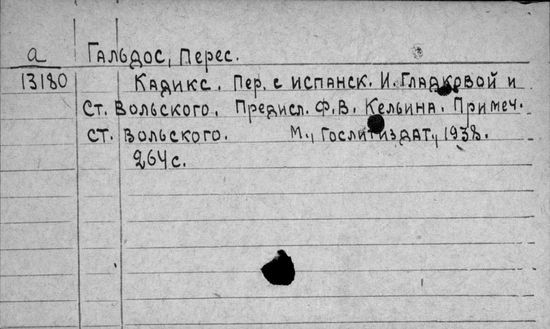 а Гальдос, Перес.
13180 Кадикс. Пер. с испанск. И. Гладковой и
Ст. Вольского. Предисл. Ф. В. Кельина. Примеч.
Ст. Вольского. М., Гослитиздат, 1938.
264 с.